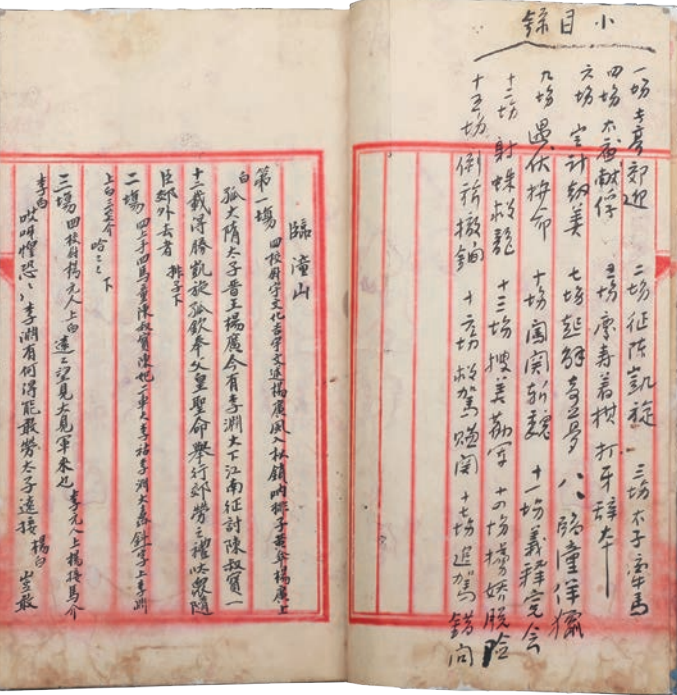 小目録
一場 方彦郊迎 二場 征陳凱旋 三場 太子牽馬
四場 太廟献俘 五場 慶寿着棋 打牙辞本
六場 定計劫美 七場 起解奇玉夢 八 臨潼佯獵
九場 遇伏拚命 十場 闖関斬魏 十一場 義釋完会
十二場 射蛛救龍 十三場 搜美勘牢 十四場 撈嬌脱險
十五場 倒旂撤鐧 十六場 救駕賺関 十七場 追駕錯向
臨潼山
第一場 四校尉宇文化吉宇文述楊廣風入松鎖吶排子黄傘楊廣上
白 孤大隋太子晋王楊廣今有李淵大下江南征討陳叔寳一
十二載得勝凱旋孤欽奉父皇聖命舉行郊勞之禮吠衆隨
臣郊外去者 排子下
二場 四上手四馬童陳叔寳陳妃二車大李祜李渊大纛斜字上李渊
上白三至介 哈ミミ 下
三場 四校尉楊元人上白 遠ミ望見大見軍来也 李元人上楊接馬介
李白 哎呀惶恐ミ八李淵有何得能敢勞太子遠接 楊白 豈敢